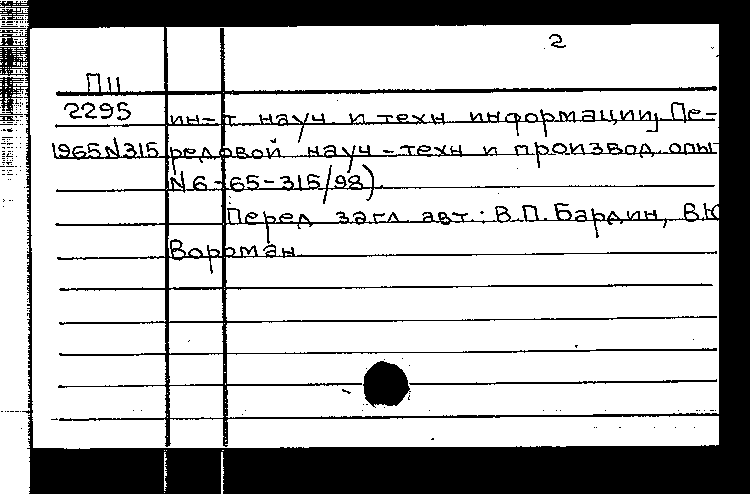 2
П11
2295 ин-т науч и техн информации, Пе-
1965 N315 редовой науч-техн и производ. опы
N 6-65-315/98).
Перед загл авт.: В.П. Бардин, В.Ю
Ворман